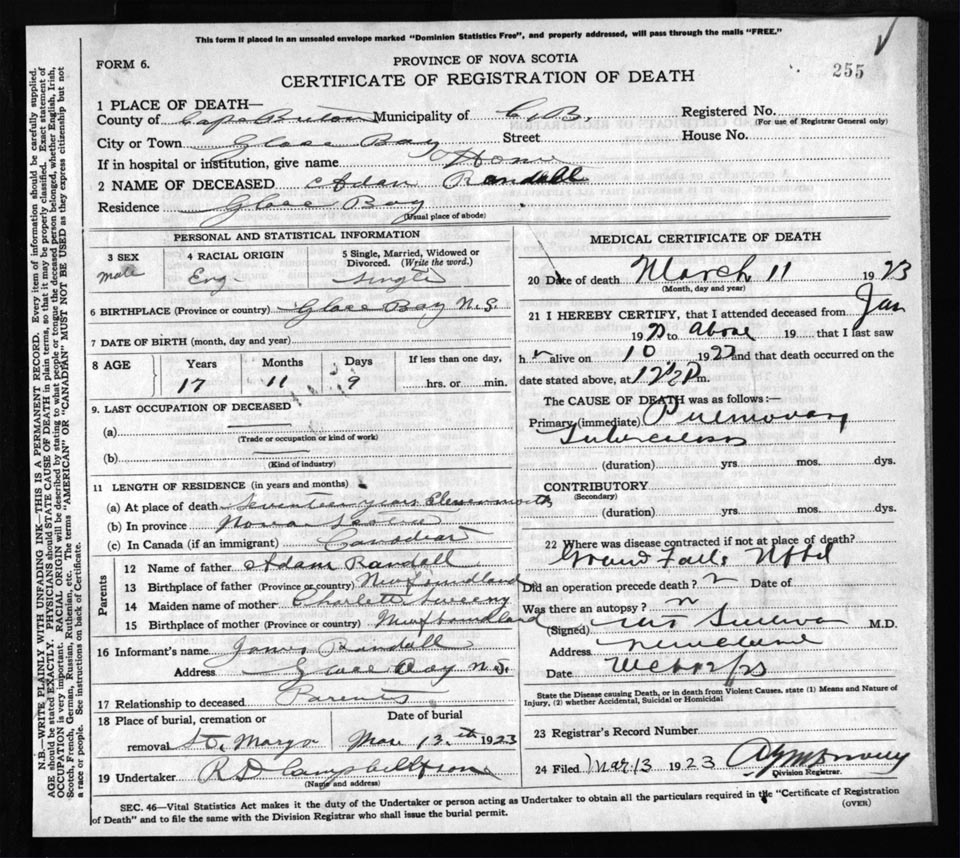 This form if placed in an unsealed envelope marked "Dominion Statistics Free", and properly addressed, will pass through the mails "FREE."
FORM 6.
PROVINCE OF NOVA SCOTIA
CERTIFICATE OF REGISTRATION OF DEATH
255
1 PLACE OF DEATH—
County of Cape Breton Municipality of C,B, Registered No.
(For use of Registrar General only)
City or Town Glace Bay Street House No.
If in hospital or institution, give name Home
2 NAME OF DECEASED Adam Randell
Residence Glace Bay
(Usual place of abode)
PERSONAL AND STATISTICAL INFORMATION
3 SEX 4 RACIAL ORIGIN 5 Single, Married, Widowed or Divorced. (Write the word.)
Male Eng. Single
6 BIRTHPLACE (Province or country) Glace Bay N.S.
7 DATE OF BIRTH (month, day and year)
8 AGE Years Months Days If less than one day,
17 11 9 hrs. or min.
9. LAST OCCUPATION OF DECEASED
(a)
(Trade or occupation or kind of work)
(b)
(Kind of industry)
11 LENGTH OF RESIDENCE (in years and months)
(a) At place of death Seventeen years Eleven months
(b) In province Nova Scotia
(c) In Canada (if an immigrant) Canadian
Parents
12 Name of father Adam Randell
13 Birthplace of father (Province or country) Newfoundland
14 Maiden name of mother Charlett Sweeny
15 Birthplace of mother (Province or country) Newfoundland
16 Informant's name James Randell
Address Glace Bay N.S.
17 Relationship to deceased Parents
18 Place of burial, cremation or Date of burial
removal St. Marys Mar 13th 1923
19 Undertaker R D Campbell & son
(Name and address)
MEDICAL CERTIFICATE OF DEATH
20 Date of death March 11 1923
(Month, day and year)
21 I HEREBY CERTIFY, that I attended deceased from Jan
19 to above 19 that I last saw
h alive on 10 19 and that death occurred on the
date stated above, at m.
The CAUSE OF DEATH was as follows:—
Primary (immediate) Pulmonary
Tuberculosis
(duration) yrs. mos. dys.
CONTRIBUTORY
(Secondary)
(duration) yrs. mos. dys.
22 Where was disease contracted if not at place of death?
Grand Falls Nfld
Did an operation precede death? n Date of
Was there an autopsy? n
(Signed) Sullivan M.D.
Address
Date
State the Disease causing Death, or in death from Violent Causes, state (1) Means and Nature of Injury, (2) whether Accidental, Suicidal or Homicidal
23 Registrar's Record Number
24 Filed Mar 13 1923
Division Registrar.
SEC. 46—Vital Statistics Act makes it the duty of the Undertaker or person acting as Undertaker to obtain all the particulars required in the "Certificate of Registration
of Death" and to file the same with the Division Registrar who shall issue the burial permit.
(OVER)
N.B.—WRITE PLAINLY WITH UNFADING INK—THIS IS A PERMANENT RECORD. Every item of information should be carefully supplied.
AGE should be stated EXACTLY. PHYSICIANS should STATE CAUSE OF DEATH in plain terms, so that it may be properly classified. Exact statement of
OCCUPATION is very important. RACIAL ORIGIN will be described by stating to what people or tongue the deceased person belonged, whether English, Irish,
Scotch, French, German, Russian, Ruthenian, etc. The terms "AMERICAN" OR "CANADIAN" MUST NOT BE USED as they express citizenship but not
a race or people. See instructions on back of Certificate.